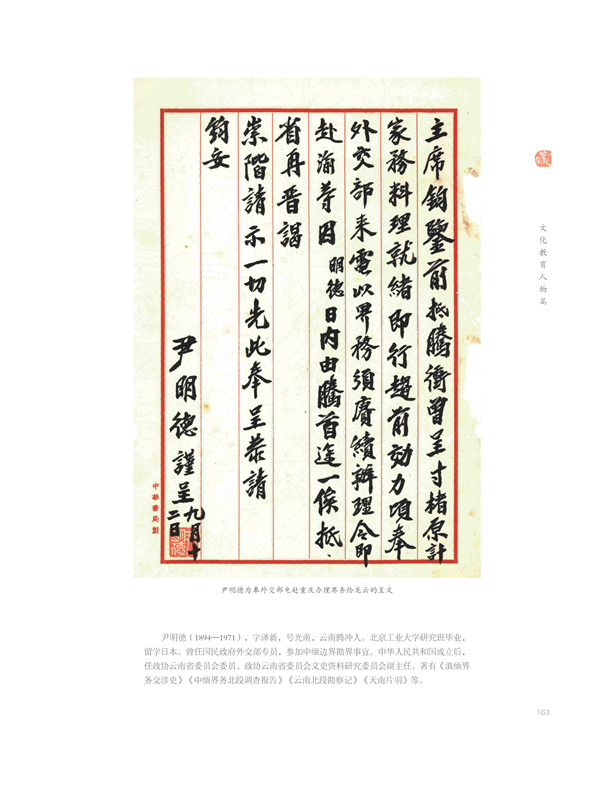 主席鈞鑒前抵騰衝曾呈寸楮原計
家務料理就緒即行趨前効力頃奉
外交部来電以界務須賡續辦理令即
赴渝等因明德日内由騰首途一俟抵
省再晋謁
崇階請示一切先此奉呈恭請
鈞安
尹明德謹呈九月十二日
中華書局製
文化教育人物篇
尹明德为奉外交部电赴重庆办理界务给龙云的呈文
尹明德（1894—1971），字泽新，号光南，云南腾冲人。北京工业大学研究班毕业，
留学日本。曾任国民政府外交部专员，参加中缅边界勘界事宜。中华人民共和国成立后，
任政协云南省委员会委员、政协云南省委员会文史资料研究委员会副主任。著有《滇缅界
务交涉史》《中缅界务北段调查报告》《云南北段勘察记》《天南片羽》等。
163